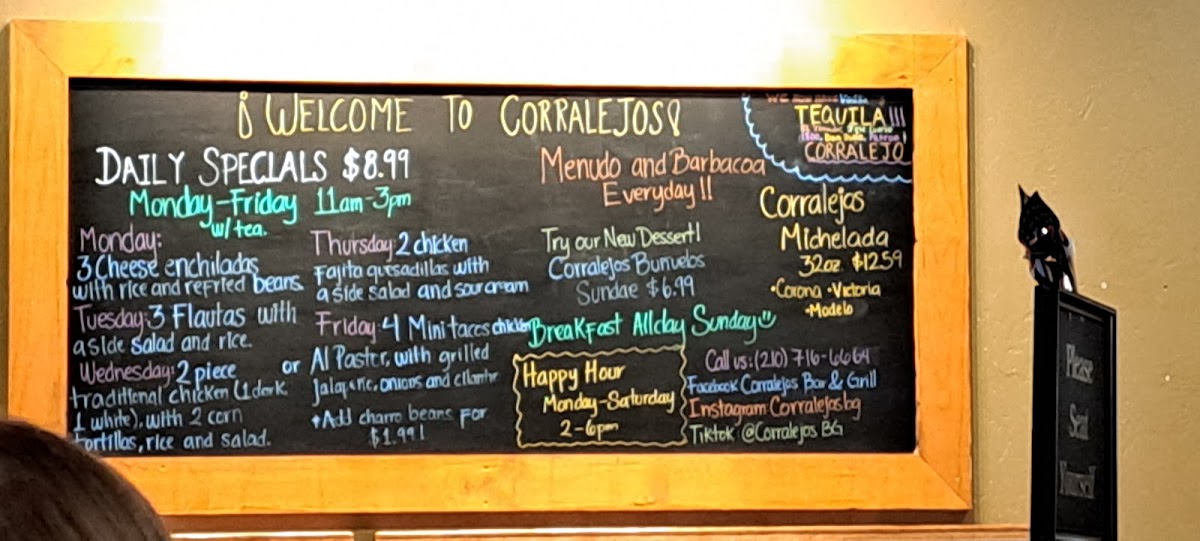 ¡WELCOME TO CORRALEJOS!
DAILY SPECIALS $8.99
Monday-Friday 11am-3pm
w/tea.
Monday:
3 Cheese enchiladas
with rice and refried beans.
Tuesday: 3 Flautas with
a side salad and rice.
Wednesday: 2 piece
traditional chicken (1 dark
1 white), with 2 corn
tortillas, rice and salad.
Thursday 2 chicken
Fajita quesadillas with
a side salad and sour cream
Friday: 4 Mini tacos chicken
or Al Pastor, with grilled
jalapeno, onions and cilantro
*Add charro beans for
$1.99!
Menudo and Barbacoa
Everyday!!
Try our New Dessert!
Corralejos Bunuelos
Sundae $6.99
Breakfast Allday Sunday
Happy Hour
Monday-Saturday
2-6pm
TEQUILA!!!
CORRALEJO
Corralejos
Michelada
32oz. $12.59
•Corona •Victoria
•Modelo
Call us: (210) 716-6664
Facebook Corralejos Bar & Grill
Instagram Corralejosbg
Tiktok @Corralejos BG
Please
Seat
Yourself